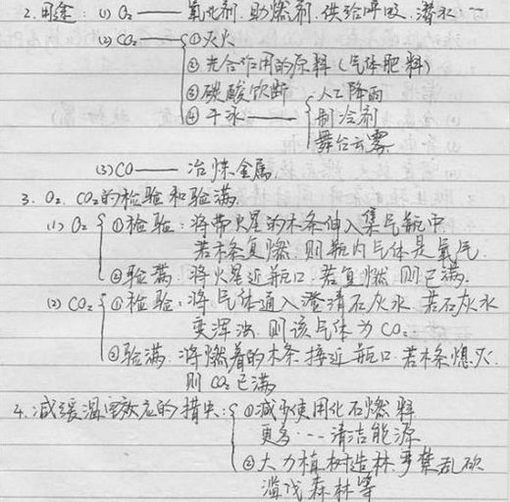 2. 用途: (1) O₂ —— 氧化剂. 助燃剂. 供给呼吸. 潜水 一
(2) CO₂ —— ①灭火
② 光合作用的原料 (气体肥料)
③ 碳酸饮料
④ 干冰 —— 人工降雨
制冷剂
舞台云雾.
(3) CO —— 冶炼金属.
3. O₂. CO₂的检验和验满
(1) O₂ ①检验: 将带火星的木条伸入集气瓶中
若木条复燃. 则瓶内气体是氧气.
②验满: 将火星近瓶口. 若复燃. 则已满.
(2) CO₂ ①检验: 将气体通入澄清石灰水. 若石灰水
变浑浊. 则该气体为CO₂.
②验满: 将燃着的木条接近瓶口. 若木条熄灭.
则CO₂已满
4. 减缓温室效应的措施: ①减少使用化石燃料
更多 --- 清洁能源
②大力植树造林. 严禁乱砍
滥伐森林等